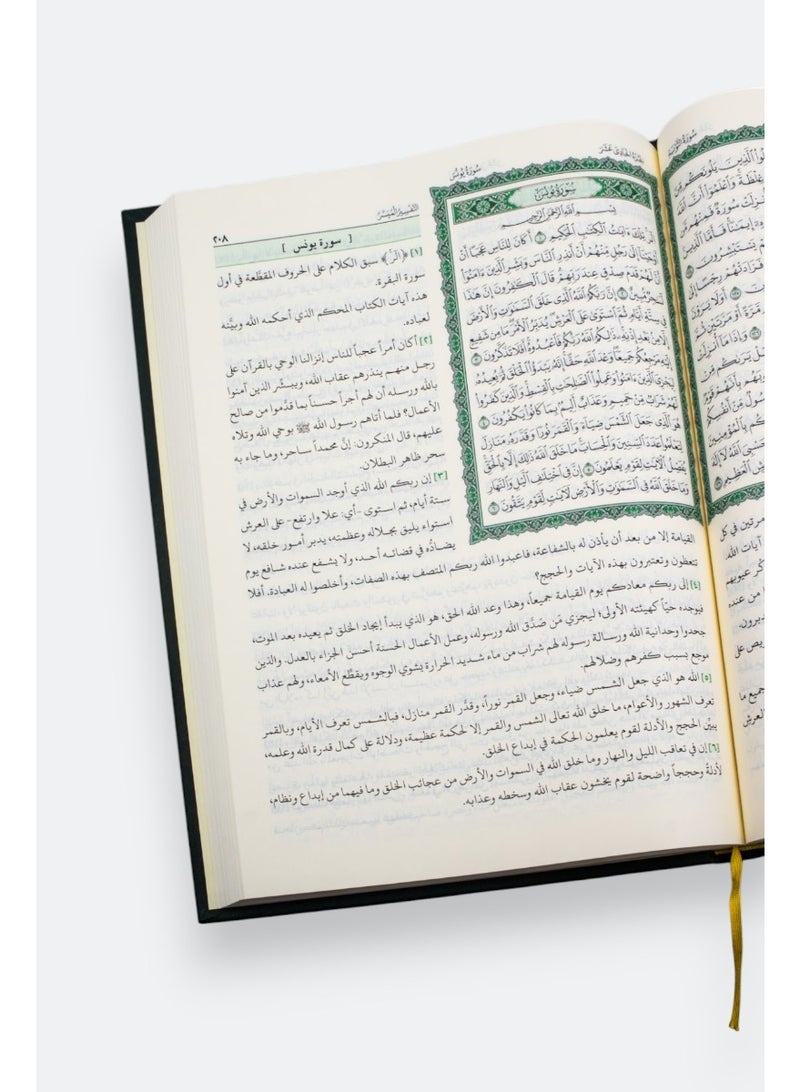 التفسير الميسر
٢٠٨
[ سورة يونس ]
[١] ﴿الٓر﴾ سبق الكلام على الحروف المقطَّعة في أول
سورة البقرة.
هذه آيات الكتاب المحكم الذي أحكمه الله وبيَّنه
لعباده.
[٢] أكان أمراً عجباً للناس إنزالنا الوحي بالقرآن على
رجل منهم ينذرهم عقاب الله، ويبشِّر الذين آمنوا
بالله ورسله أن لهم أجراً حسناً بما قدَّموا من صالح
الأعمال؟ فلما أتاهم رسول الله ﷺ بوحي الله وتلاه
عليهم، قال المنكرون: إنَّ محمداً ساحر، وما جاء به
سحر ظاهر البطلان.
[٣] إن ربكم الله الذي أوجد السموات والأرض في
ستة أيام، ثم استوى -أي: علا وارتفع- على العرش
استواء يليق بجلاله وعظمته، يدبر أمور خلقه، لا
يضادُّه في قضائه أحد، ولا يشفع عنده شافع يوم
القيامة إلا من بعد أن يأذن له بالشفاعة، فاعبدوا الله ربكم المتصف بهذه الصفات، وأخلصوا له العبادة. أفلا
تتعظون وتعتبرون بهذه الآيات والحجج؟
[٤] إلى ربكم معادكم يوم القيامة جميعاً، وهذا وعد الله الحق، هو الذي يبدأ إيجاد الخلق ثم يعيده بعد الموت،
فيوجده حيّاً كهيئته الأولى؛ ليجزي مَن صَدَّق الله ورسوله، وعمل الأعمال الحسنة أحسن الجزاء بالعدل. والذين
جحدوا وحدانية الله ورسالة رسوله لهم شراب من ماء شديد الحرارة يشوي الوجوه ويقطِّع الأمعاء، ولهم عذاب
موجع بسبب كفرهم وضلالهم.
[٥] الله هو الذي جعل الشمس ضياء، وجعل القمر نوراً، وقدَّر القمر منازل، فبالشمس تعرف الأيام، وبالقمر
تعرف الشهور والأعوام، ما خلق الله تعالى الشمس والقمر إلا لحكمة عظيمة، ودلالة على كمال قدرة الله وعلمه،
يبيِّن الحجج والأدلة لقوم يعلمون الحكمة في إبداع الخلق.
[٦] إن في تعاقب الليل والنهار وما خلق الله في السموات والأرض من عجائب الخلق وما فيهما من إبداع ونظام،
لأدلةً وحججاً واضحة لقوم يخشون عقاب الله وسخطه وعذابه.
الجزء الحادي عشر
سورة يونس
سُورَةُ يُونُسَ
بِسْمِ اللَّهِ الرَّحْمَٰنِ الرَّحِيمِ
الٓر تِلْكَ ءَايَٰتُ ٱلْكِتَٰبِ ٱلْحَكِيمِ ١ أَكَانَ لِلنَّاسِ عَجَبًا أَنْ
أَوْحَيْنَآ إِلَىٰ رَجُلٍ مِّنْهُمْ أَنْ أَنذِرِ ٱلنَّاسَ وَبَشِّرِ ٱلَّذِينَ ءَامَنُوٓا۟
أَنَّ لَهُمْ قَدَمَ صِدْقٍ عِندَ رَبِّهِمْ قَالَ ٱلْكَٰفِرُونَ إِنَّ هَٰذَا
لَسَٰحِرٌ مُّبِينٌ ٢ إِنَّ رَبَّكُمُ ٱللَّهُ ٱلَّذِى خَلَقَ ٱلسَّمَٰوَٰتِ وَٱلْأَرْضَ
فِى سِتَّةِ أَيَّامٍ ثُمَّ ٱسْتَوَىٰ عَلَى ٱلْعَرْشِ يُدَبِّرُ ٱلْأَمْرَ مَا مِن شَفِيعٍ
إِلَّا مِنۢ بَعْدِ إِذْنِهِۦ ذَٰلِكُمُ ٱللَّهُ رَبُّكُمْ فَٱعْبُدُوهُ أَفَلَا تَذَكَّرُونَ ٣
إِلَيْهِ مَرْجِعُكُمْ جَمِيعًا وَعْدَ ٱللَّهِ حَقًّا إِنَّهُۥ يَبْدَؤُا۟ ٱلْخَلْقَ ثُمَّ يُعِيدُهُۥ
لِيَجْزِىَ ٱلَّذِينَ ءَامَنُوا۟ وَعَمِلُوا۟ ٱلصَّٰلِحَٰتِ بِٱلْقِسْطِ وَٱلَّذِينَ كَفَرُوا۟
لَهُمْ شَرَابٌ مِّنْ حَمِيمٍ وَعَذَابٌ أَلِيمٌۢ بِمَا كَانُوا۟ يَكْفُرُونَ ٤
هُوَ ٱلَّذِى جَعَلَ ٱلشَّمْسَ ضِيَآءً وَٱلْقَمَرَ نُورًا وَقَدَّرَهُۥ مَنَازِلَ
لِتَعْلَمُوا۟ عَدَدَ ٱلسِّنِينَ وَٱلْحِسَابَ مَا خَلَقَ ٱللَّهُ ذَٰلِكَ إِلَّا بِٱلْحَقِّ
يُفَصِّلُ ٱلْءَايَٰتِ لِقَوْمٍ يَعْلَمُونَ ٥ إِنَّ فِى ٱخْتِلَٰفِ ٱلَّيْلِ وَٱلنَّهَارِ
وَمَا خَلَقَ ٱللَّهُ فِى ٱلسَّمَٰوَٰتِ وَٱلْأَرْضِ لَءَايَٰتٍ لِّقَوْمٍ يَتَّقُونَ ٦